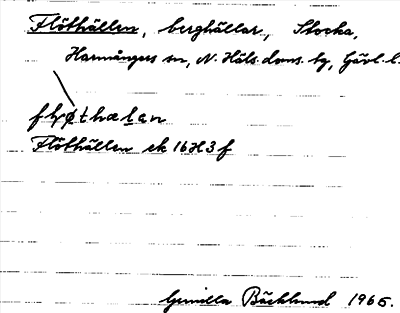 Flöthällen, berghällar, Stocka,
Harmångers sn, N. Häls. doms. bg, Gävl. l.
fløthælan
Flöthällen ek 16H3f
Gunilla Bäcklund 1966.